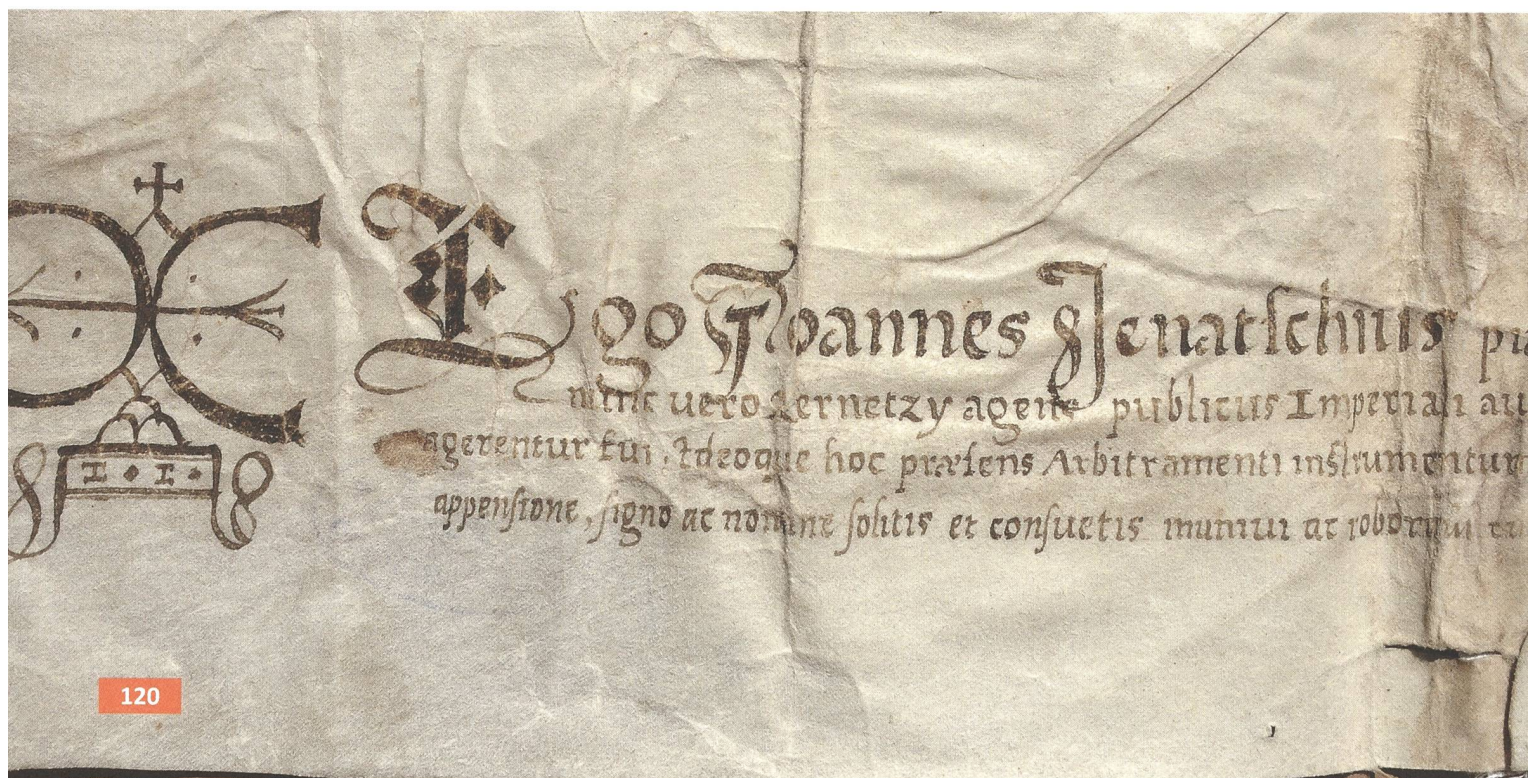 Ego Joannes Jenatschius
nunc vero Zernetzy agens publicus Imperiali au
agerentur fui, Ideoque hoc præsens Arbitramenti instrumentum
appensione, signo ac nomine solitis et consuetis munivi ac roboravi
I · I ·
120